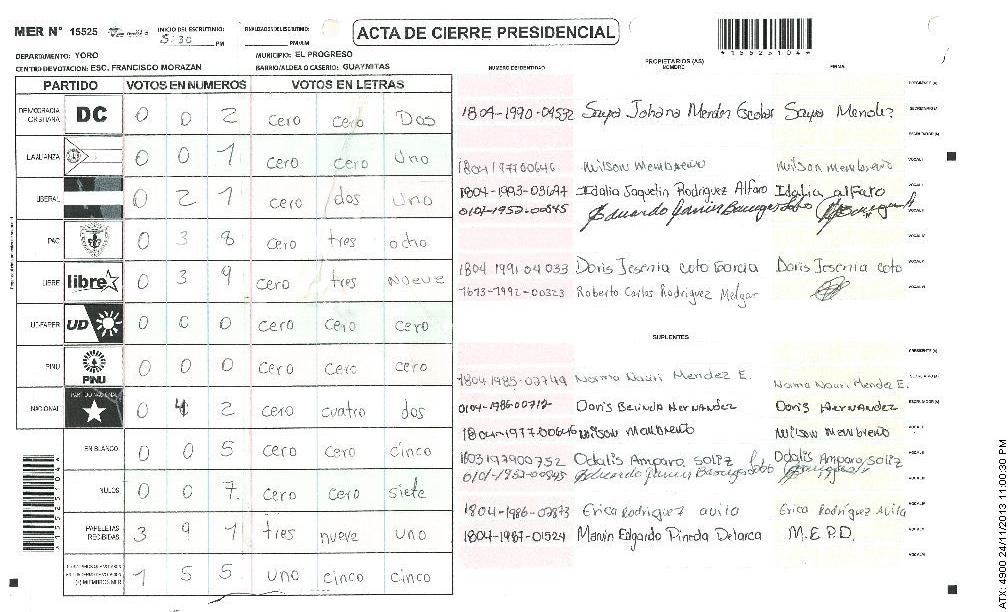 MER N° 15525
INICIO DEL ESCRUTINIO: 5:30 PM
FINALIZACION DEL ESCRUTINIO: PM/AM
ACTA DE CIERRE PRESIDENCIAL
*1552504*
DEPARTAMENTO: YORO
MUNICIPIO: EL PROGRESO
CENTRO DE VOTACION: ESC. FRANCISCO MORAZAN
BARRIO/ALDEA O CASERIO: GUAYMITAS
PARTIDO VOTOS EN NUMEROS VOTOS EN LETRAS
DEMOCRACIA CRISTIANA DC 0 0 2 cero cero Dos
LA ALIANZA 0 0 1 cero cero uno
LIBERAL 0 2 1 cero dos uno
PAC 0 3 8 cero tres ocho
LIBRE libre 0 3 9 cero tres Nueve
UD-FAPER UD 0 0 0 cero cero cero
PINU PINU 0 0 0 cero cero cero
NACIONAL PARTIDO NACIONAL 0 4 2 cero cuatro dos
EN BLANCO 0 0 5 cero cero cinco
NULOS 0 0 7. cero cero siete
PAPELETAS RECIBIDAS 3 9 1 tres nueve uno
1 5 5 uno cinco cinco
NUMERO DE IDENTIDAD PROPIETARIOS (AS) NOMBRE FIRMA
PRESIDENTE (A)
1804-1990-04532 Johana Mendez Escobar SECRETARIO (A)
ESCRUTADOR (A)
1804197700646 Wilson Membreño Wilson Membreño VOCAL I
1804-1993-03697 Idalia Jaquelin Rodriguez Alfaro Idalia alfaro
0101-1952-00845 Eduardo
1804 1991 04 033 Doris Jesenia Coto Garcia Doris Jesenia Coto
1673-1992-00323 Roberto Carlos Rodriguez Melgar
SUPLENTES
PRESIDENTE (A)
1804-1985-03749 Norma Nauri Mendez E. Norma Nauri Mendez E.
0104-1986-00712 Doris Belinda Hernandez Doris Hernandez ESCRUTADOR (A)
1804-1977-00646 Wilson Membreño Wilson Membreño VOCAL I
1803197900752 Odalis Amparo soliz Odalis Amparo soliz
0101-1952-00845 Eduardo
1804-1986-03873 Erica Rodriguez avila Erica Rodriguez Avila
1804-1987-01524 Marvin Edgardo Pineda Delarca M.E.P.D.
*1552504*
ATX: 4900 24/11/2013 11:00:30 PM